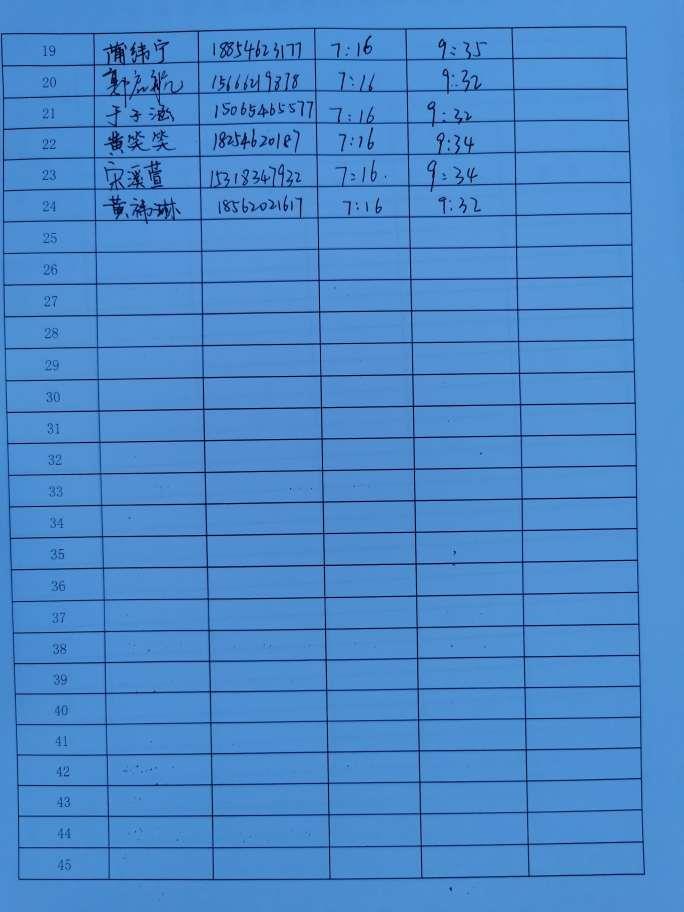 19 蔺纬宁 18854623177 7:16 9:35
20 郭启航 15666219878 7:16 9:32
21 于子涵 15065465577 7:16 9:32
22 黄笑笑 18254620187 7:16 9:34
23 宋溪萱 15318347932 7:16. 9:34
24 黄祎琳 18562021617 7:16 9:32
25
26
27
28
29
30
31
32
33
34
35
36
37
38
39
40
41
42
43
44
45